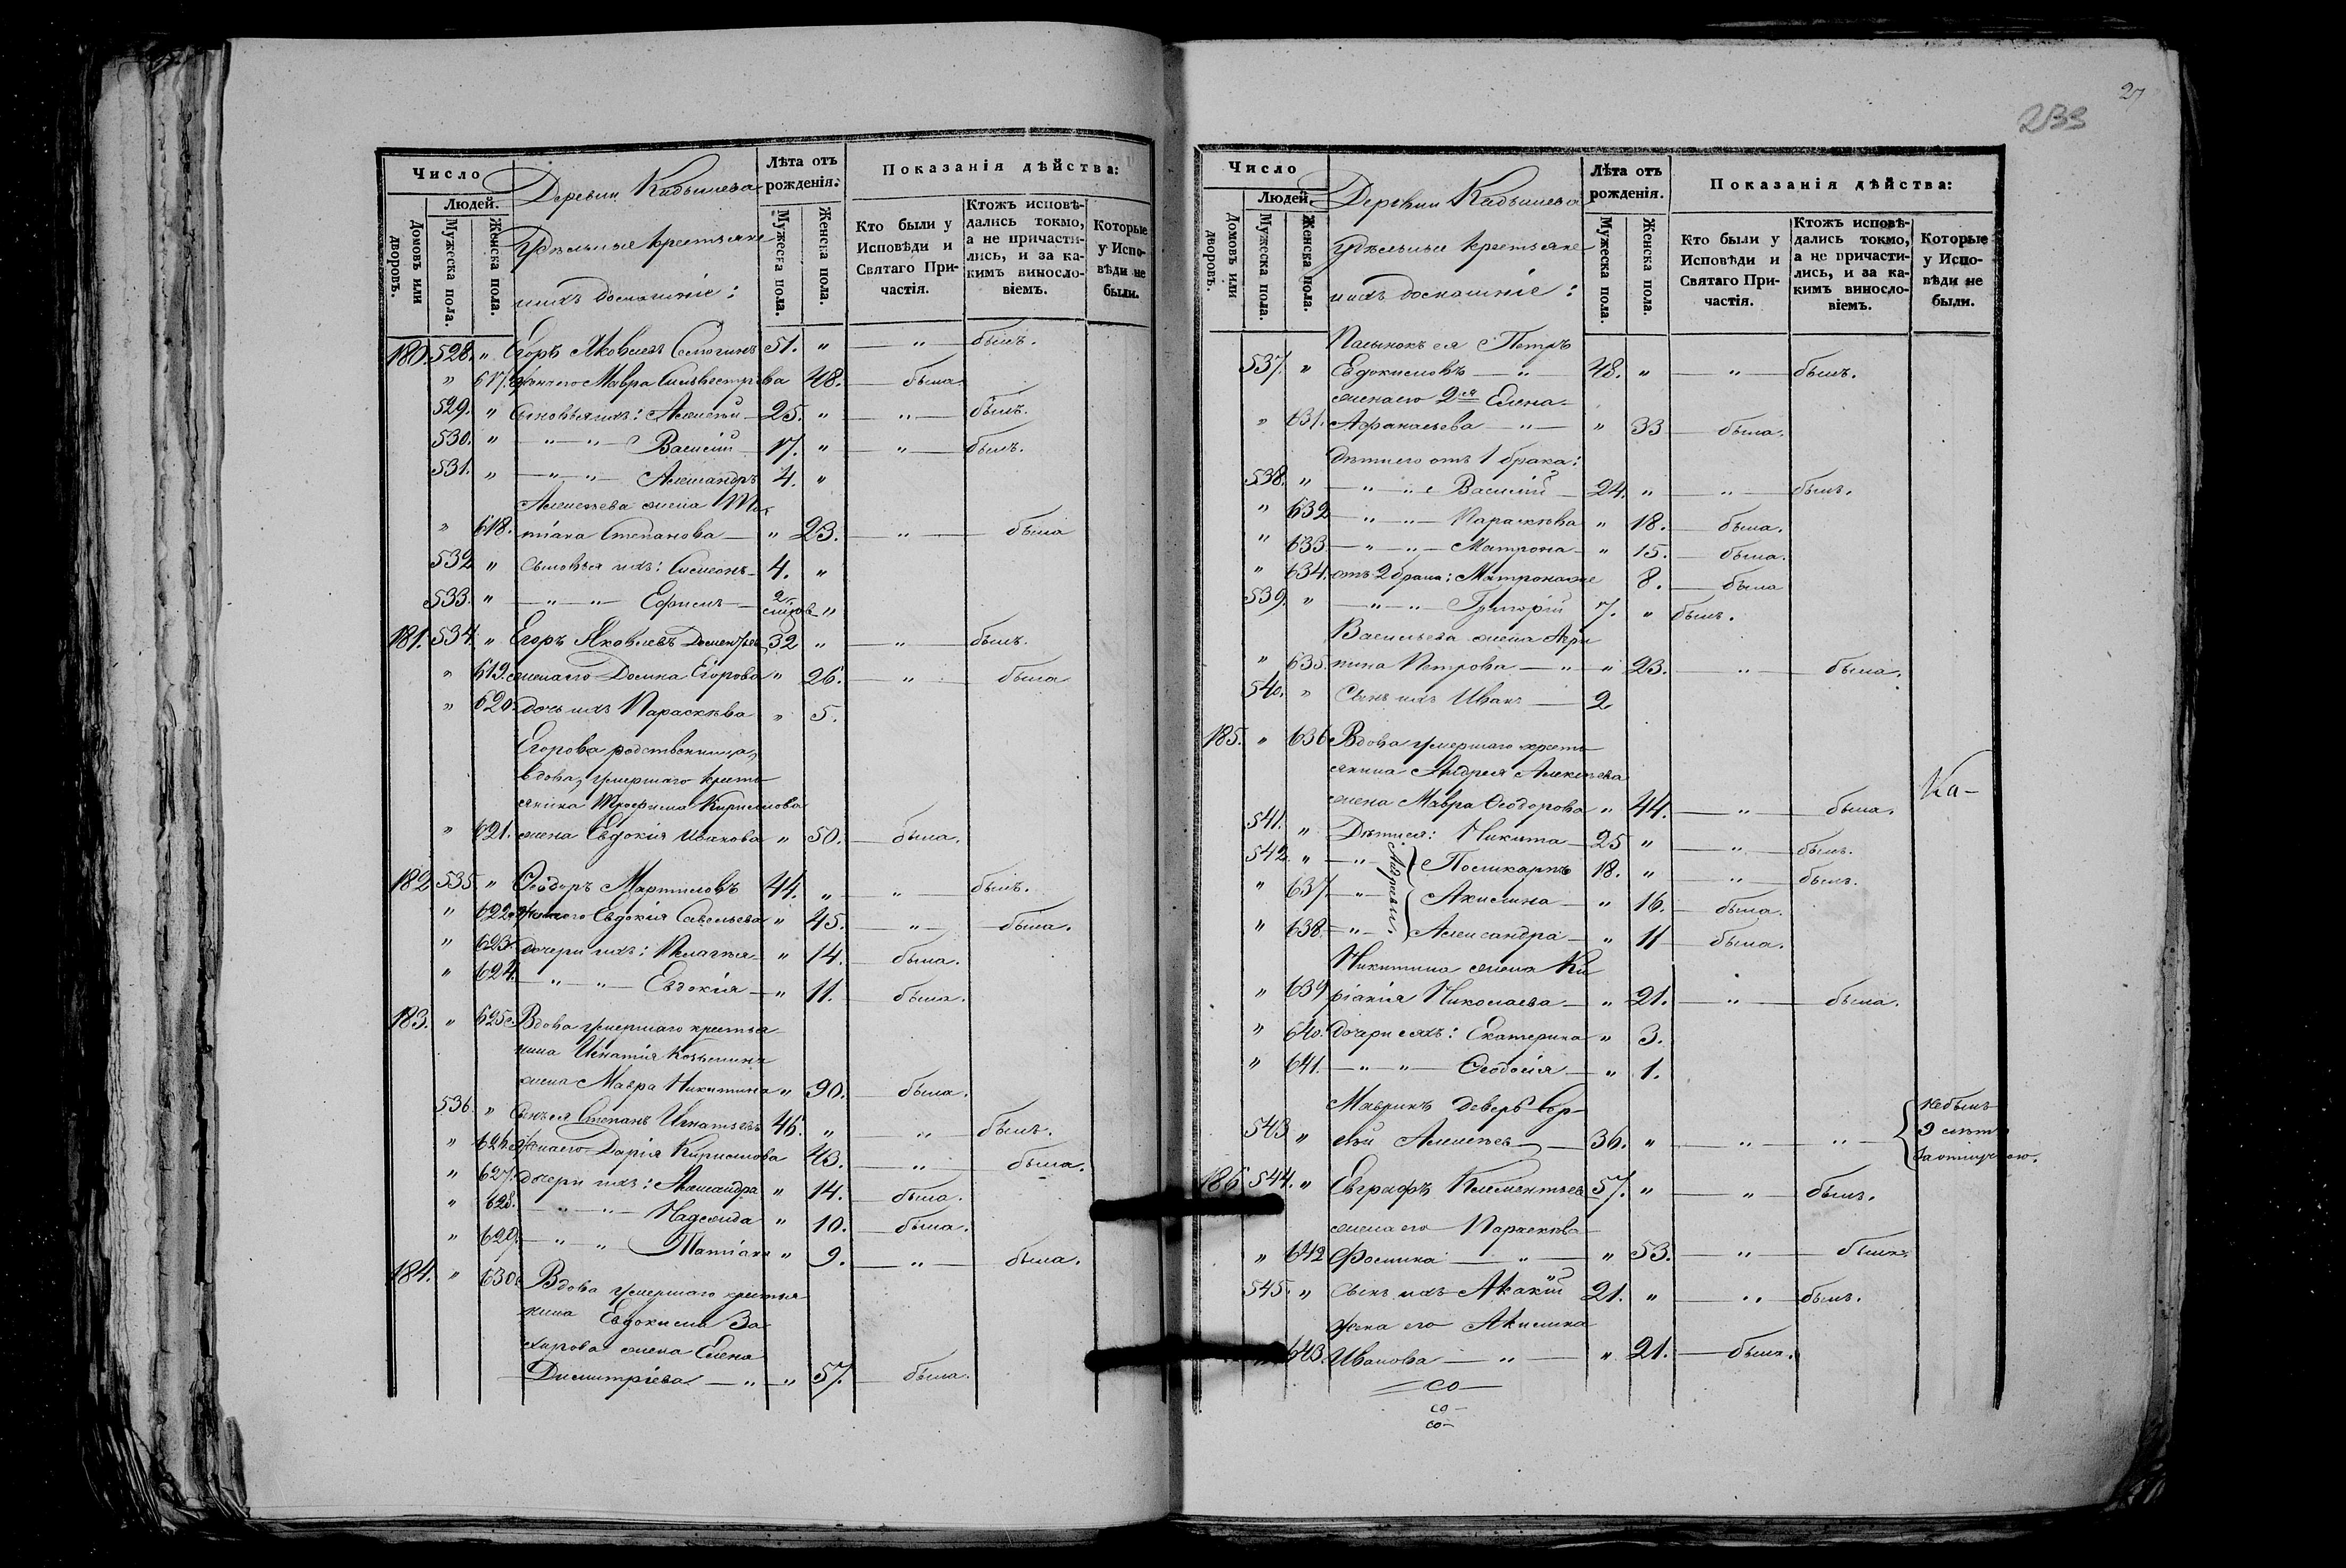 Число
Деревни Кадышева
Лѣта отъ рожденія.
Показанія дѣйства:
Людей.
Домовъ или дворовъ.
Мужеска пола.
Женска пола.
Удѣльные крестьяне
ихъ домашніе:
Мужеска пола.
Женска пола.
Кто были у Исповѣди и Святаго Причастія.
Ктожъ исповѣдались токмо, а не причастились, и за какимъ винословіемъ.
Которые у Исповѣди не были.
180. 528. " Егоръ Яковлевъ 51. " — " — былъ.
" 617. Жена его Мавра Сильвестрова 48. — была
529. " Сыновья ихъ: Алексѣй — 25. " — " — былъ.
530. " — " — " — Василій — 17. " — " — былъ.
531. " — " — " — Александръ 4. "
Алексѣева жена Та
" 618. тіана Степанова — " 23. — " — была
532 " Сыновья ихъ: Симеонъ — 4. "
533. " — " — " — Ефимъ — 2. "
181. 534. " Егоръ Яковлевъ 32 " — " — былъ.
" 619. жена его Домна Егорова " 26. — " — была
" 620. дочь ихъ Параскѣва " 5.
Егорова родственница,
вдова, умершаго кресть
янина Трофима Кирилова
" 621. жена Евдокія Иванова " 50. — была.
182 535. " Ѳеодоръ Мартиновъ 44. " — " — былъ.
" 622. Жена его Евдокія Савельева " 45. — " — была.
" 623. дочери ихъ: Пелагѣя — " 14. — была.
" 624. — " — " — Евдокія — " 11. — была.
183. " 625. Вдова умершаго крестья
нина Игнатія Козьмина
жена Мавра Никитина " 90. — была.
536. " Сынъ ея Степанъ Игнатьевъ 46. " — " — былъ.
" 626. Жена его Дарія Кирилова 43. — " — была.
" 627. дочери ихъ: Александра " 14. — была.
" 628. — " — " — Надежда " 10. — была.
" 629. — " — " Татіана " 9. — " — была.
184. " 630. Вдова умершаго крестья
нина Евдокима За
харова жена Елена
Димитріева — " — " 57. — была.
27
233
Число
Деревни Кадышева
Лѣта отъ рожденія.
Показанія дѣйства:
Людей
Домовъ или дворовъ.
Мужеска пола.
Женска пола.
Удѣльные крестьяне
ихъ домашніе:
Мужеска пола.
Женска пола.
Кто были у Исповѣди и Святаго Причастія.
Ктожъ исповѣдались токмо, а не причастились, и за какимъ винословіемъ.
Которые у Исповѣди не были.
Пасынокъ ея Петръ
537. " Евдокимовъ — " — 48. " — " — былъ.
жена его 2я Елена —
" 631. Афанасьева — " — " 33 — была.
Дѣти его отъ 1 брака:
538. " — " — " — Василій — 24. " — " — былъ.
" 632 — " — " — Параскѣва " 18. — была.
" 633 — " — " — Матрона — " 15. — была.
" 634. отъ 2 брака: Матрона же 8. — была
539. " — " — " — Григорій 7. " былъ.
Васильева жена Агри
" 635. пина Петрова — " — " 23. — " — была.
540. " Сынъ ихъ Иванъ — 2
185. " 636 Вдова умершаго кресть
янина Андрея Алексѣева
жена Мавра Ѳеодорова " 44. — " — была. Ка-
541. " Дѣти ея: Никита — 25 " — " — былъ.
542. " — " — Поликарпъ 18. " — " — былъ.
Андреевы.
" 637. — " — Акилина — " 16. — была.
" 638. — " — Александра — " 11 — была.
Никитина жена Ки
" 639 ріакія Николаева — " 21. — " — была.
" 640. дочери ихъ: Екатерина " 3.
" 641. — " — " — Ѳеодосія — " 1.
Мавринъ деверь Сер-
543 " гѣй Алексѣевъ — 36. " — " — " —
небылъ
9 лѣтъ
За отлучкою.
186 544. " Евграфъ Климентьевъ 57. " — " — былъ.
жена его Параскѣва
" 642 Фомина — " — " 53. — " — была.
545. " Сынъ ихъ Акакій 21. " — " — былъ.
жена его Акилина
643 Иванова — " — " 21. — была.